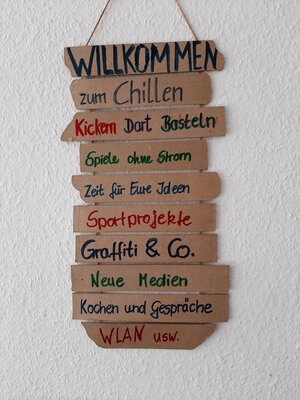 WILLKOMMEN
zum Chillen
Kickern Dart Basteln
Spiele ohne Strom
Zeit für Eure Ideen
Sportprojekte
Graffiti & Co.
Neue Medien
Kochen und Gespräche
WLAN usw.